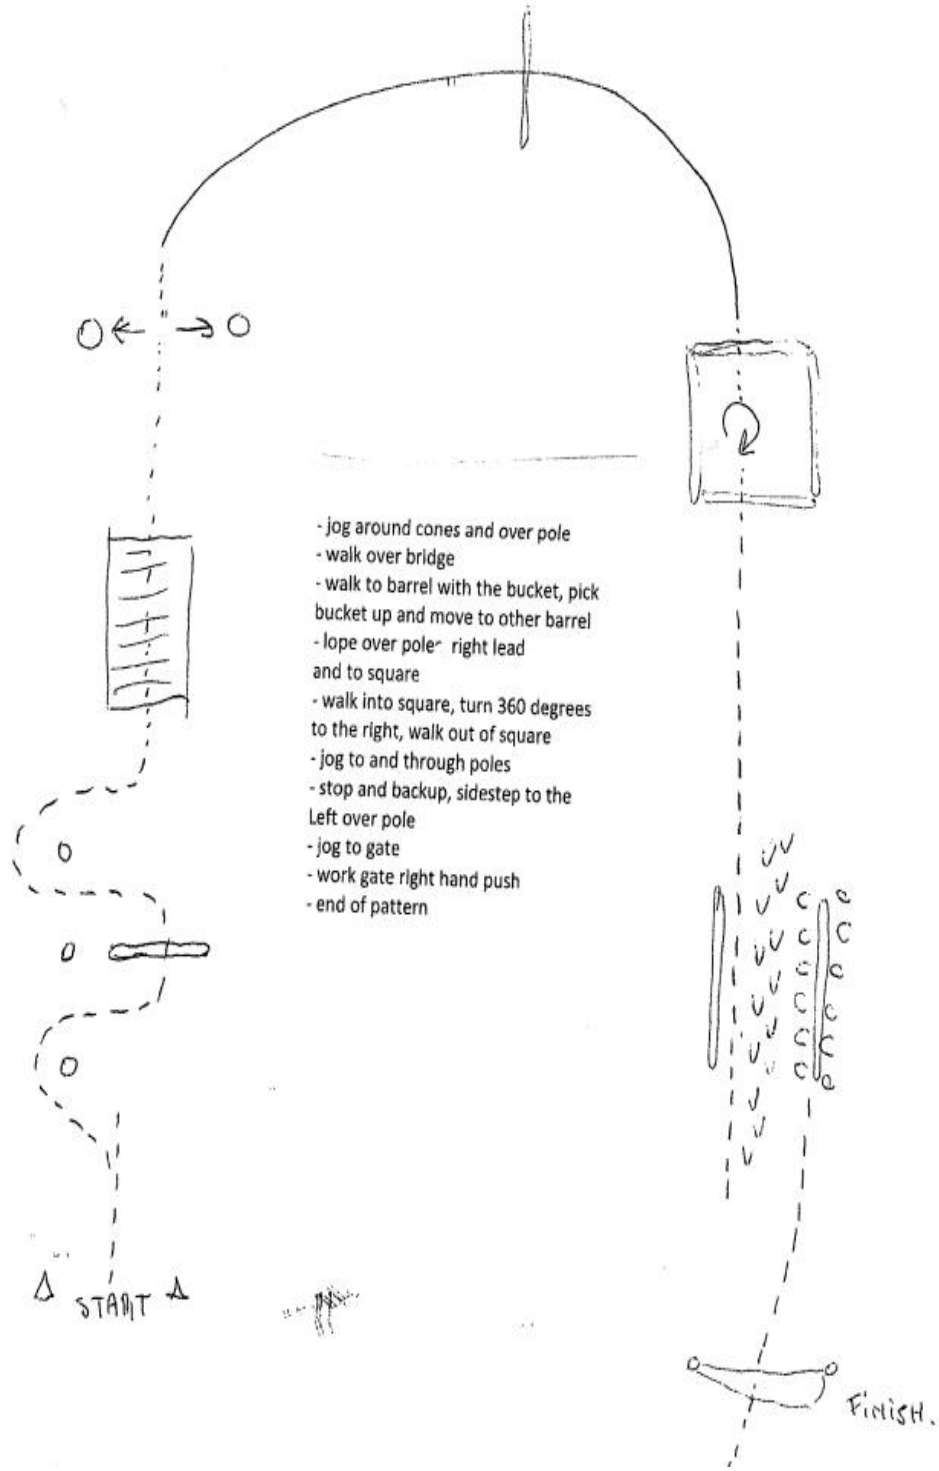 - jog around cones and over pole
- walk over bridge
- walk to barrel with the bucket, pick
bucket up and move to other barrel
- lope over pole- right lead
and to square
- walk into square, turn 360 degrees
to the right, walk out of square
- jog to and through poles
- stop and backup, sidestep to the
Left over pole
- jog to gate
- work gate right hand push
- end of pattern
START
FiNiSH.